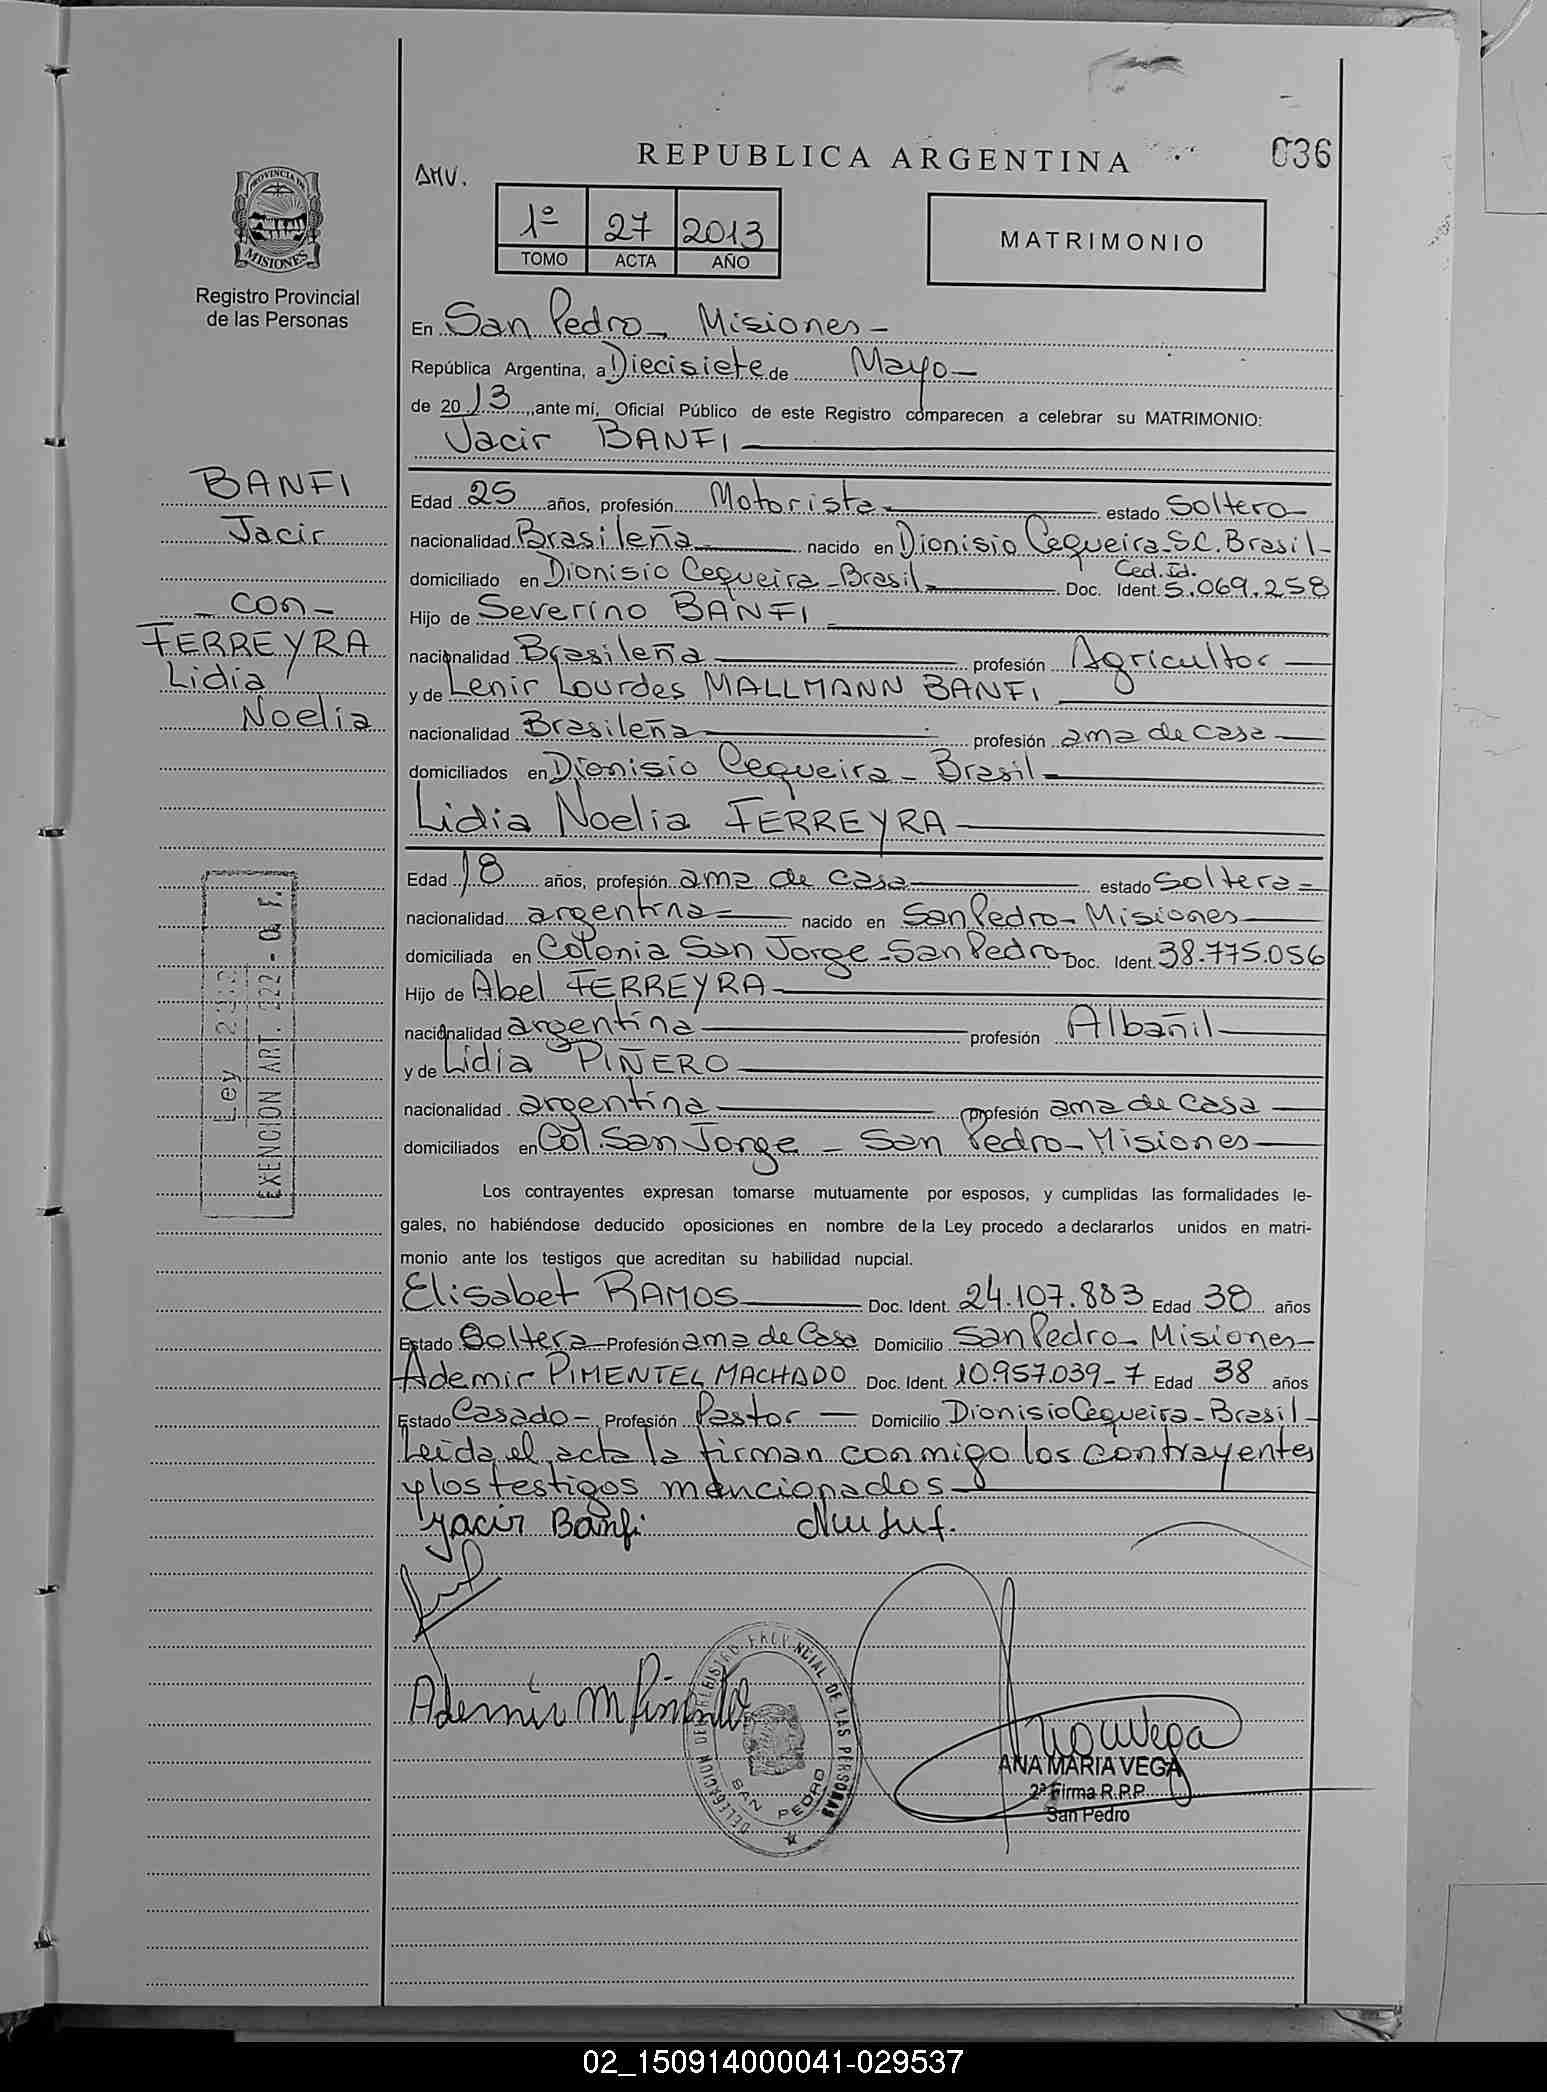 REPUBLICA ARGENTINA
036
AMV.
1º 27 2013
TOMO ACTA AÑO
MATRIMONIO
PROVINCIA DE
MISIONES
Registro Provincial
de las Personas
En San Pedro - Misiones -
República Argentina, a Diecisiete de Mayo -
de 2013, ante mí, Oficial Público de este Registro comparecen a celebrar su MATRIMONIO:
Jacir BANFI
BANFI
Jacir
- con -
FERREYRA
Lidia
Noelia
Edad 25 años, profesión Motorista estado Soltero -
nacionalidad Brasileña nacido en Dionisio Cequeira - S.C. Brasil -
domiciliado en Dionisio Cequeira - Brasil - Doc. Ident. Ced. Id. 5.069.258
Hijo de Severino BANFI
nacionalidad Brasileña profesión Agricultor
y de Lenir Lourdes MALLMANN BANFI
nacionalidad Brasileña profesión ama de casa
domiciliados en Dionisio Cequeira - Brasil
Lidia Noelia FERREYRA
Edad 18 años, profesión ama de casa estado Soltera -
nacionalidad argentina nacido en San Pedro - Misiones
domiciliada en Colonia San Jorge - San Pedro - Doc. Ident. 38.775.056
Hijo de Abel FERREYRA
nacionalidad argentina profesión Albañil
y de Lidia PIÑERO
nacionalidad argentina profesión ama de casa
domiciliados en Col. San Jorge - San Pedro - Misiones
Ley
EXENCION ART. 222 - O. F.
Los contrayentes expresan tomarse mutuamente por esposos, y cumplidas las formalidades le-
gales, no habiéndose deducido oposiciones en nombre de la Ley procedo a declararlos unidos en matri-
monio ante los testigos que acreditan su habilidad nupcial.
Elisabet RAMOS Doc. Ident. 24.107.883 Edad 38 años
Estado Soltera - Profesión ama de Casa Domicilio San Pedro - Misiones -
Ademir PIMENTEL MACHADO Doc. Ident. 10.957.039-7 Edad 38 años
Estado Casado - Profesión Pastor - Domicilio Dionisio Cequeira - Brasil -
Leida el acta la firman conmigo los contrayentes
y los testigos mencionados
Jacir Banfi
Ademir M Pimentel
DELEGACION DEL REGISTRO PROVINCIAL DE LAS PERSONAS
SAN PEDRO
ANA MARIA VEGA
2ª Firma R.P.P.
San Pedro
02_150914000041-029537